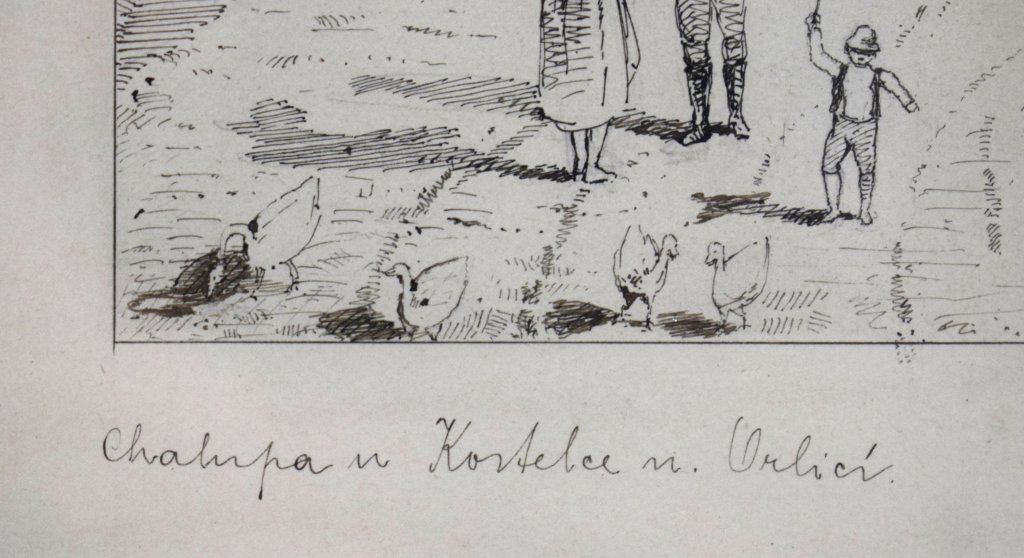 Chalupa u Kostelce n. Orlicí.